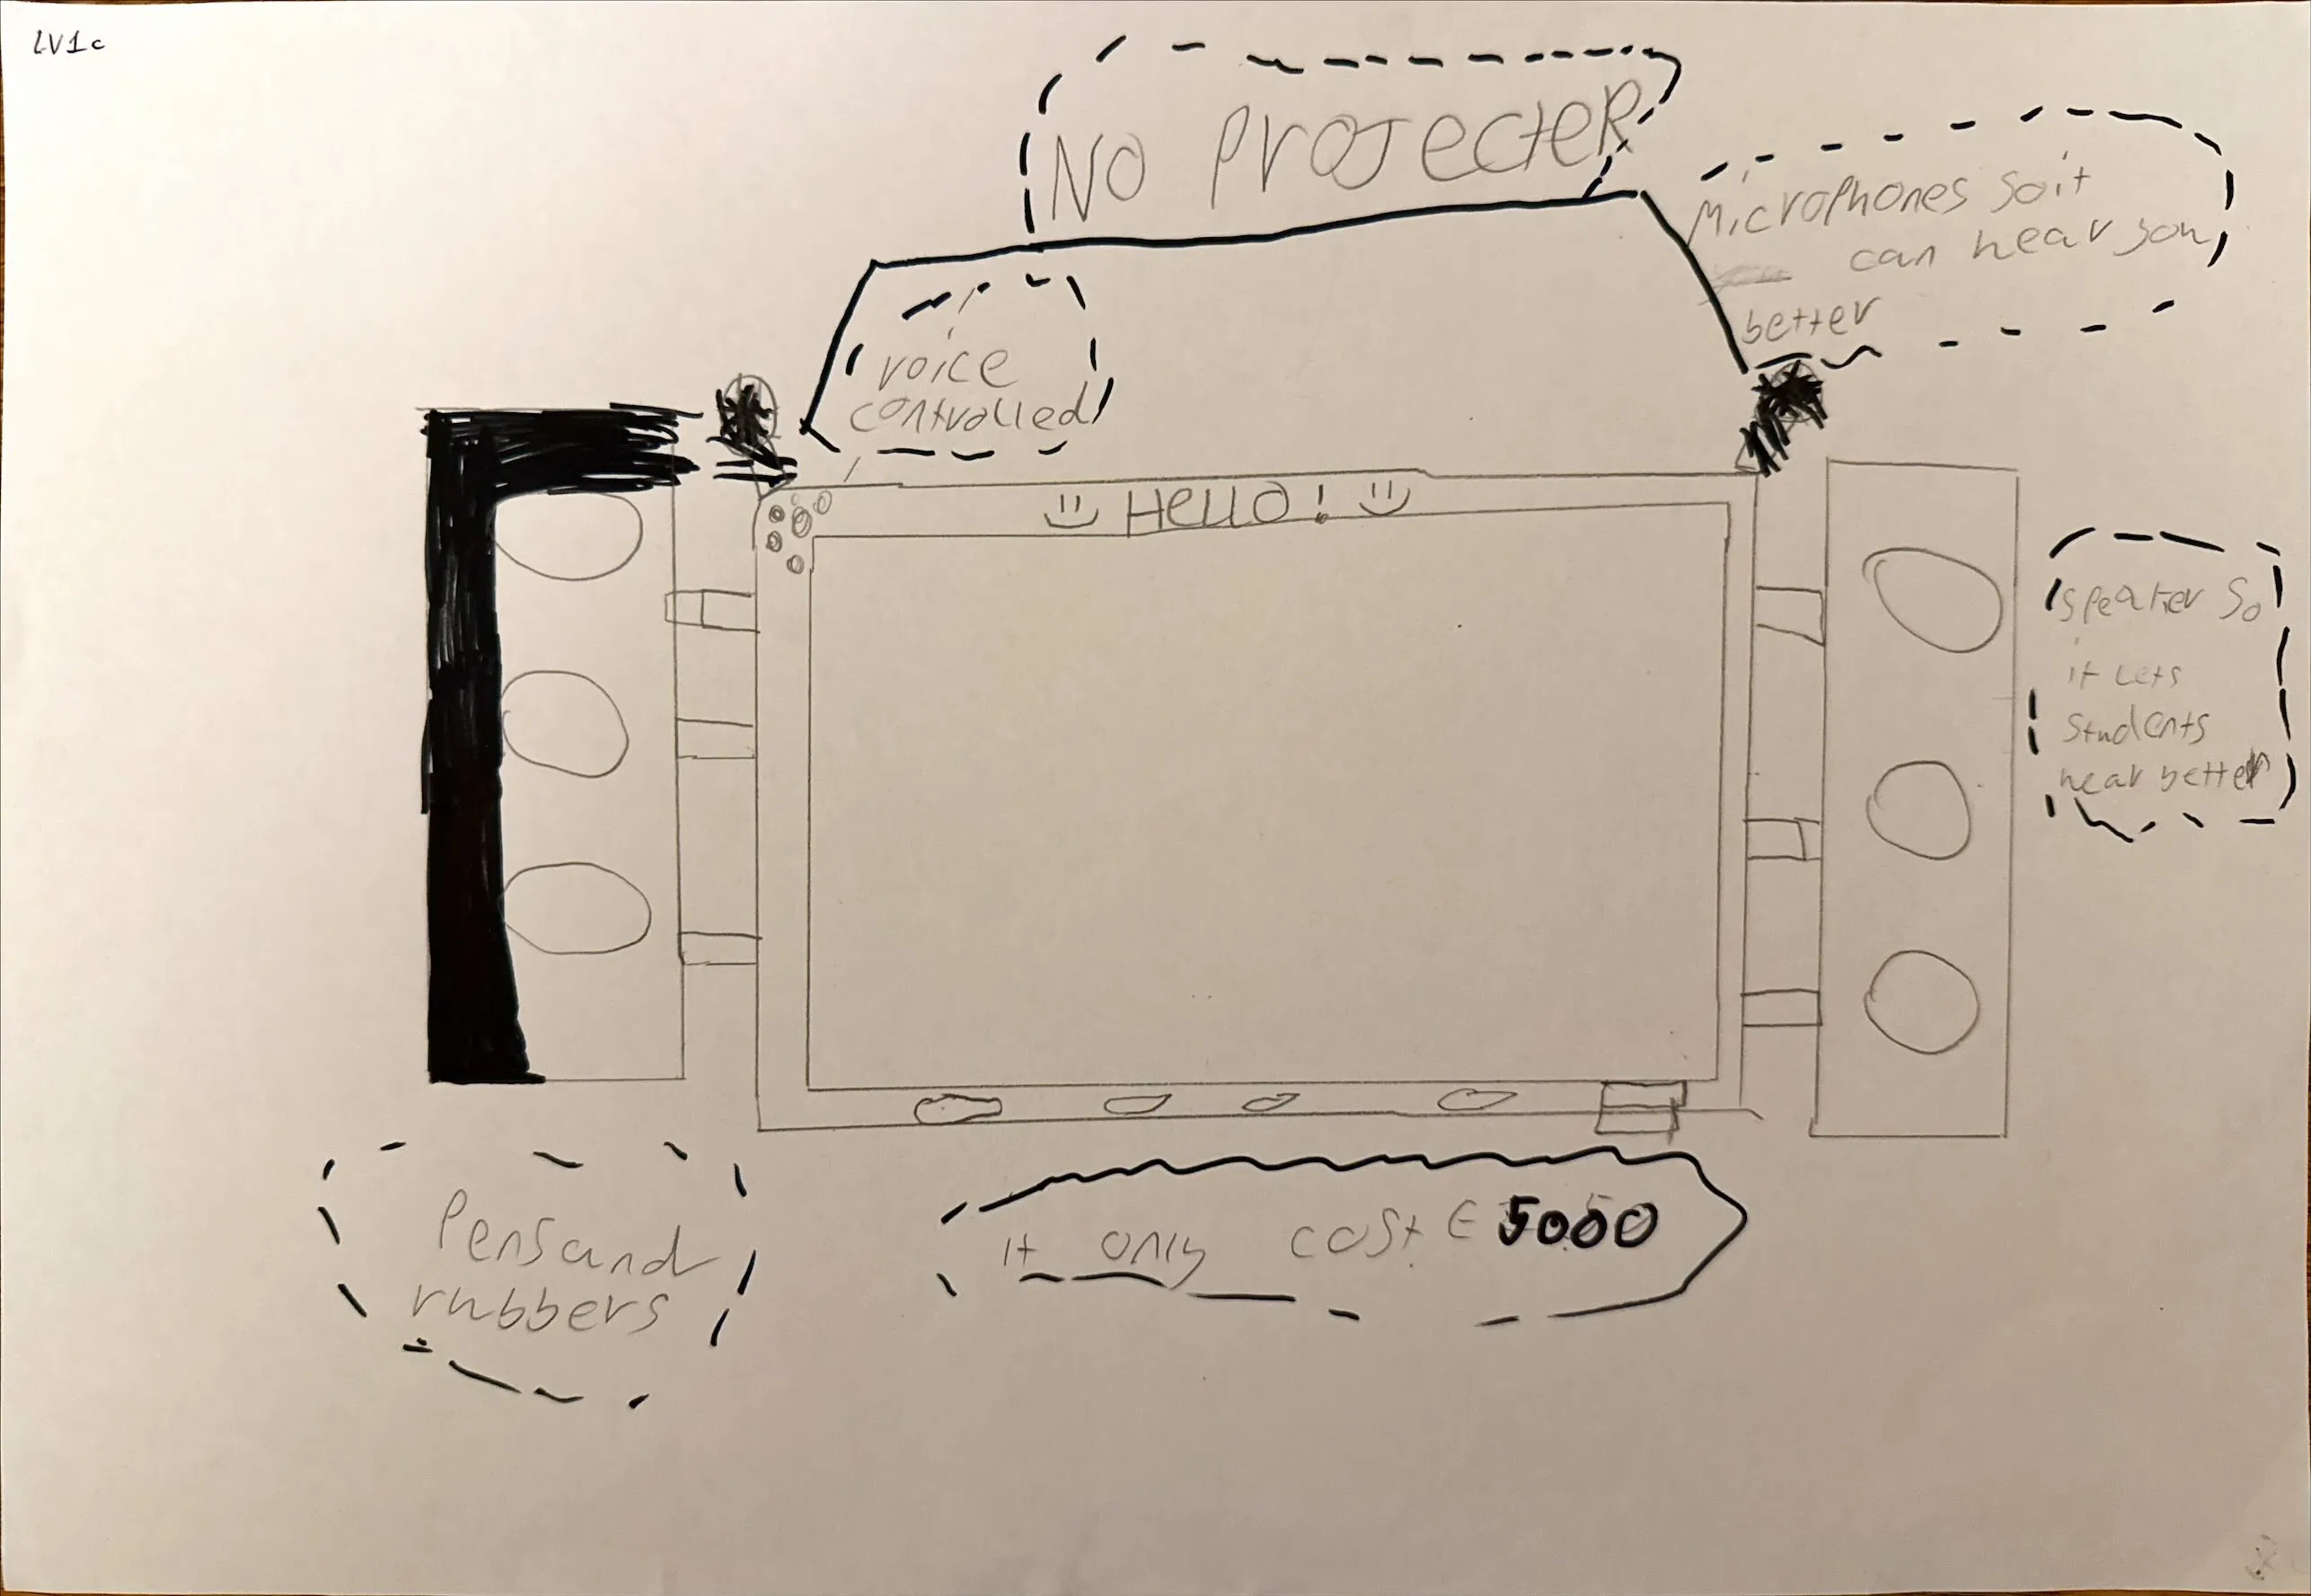 LV1c
NO PROJECTER
Microphones so it
can hear you
better
voice
controlled
Hello!
speaker so
it lets
students
hear better
Pens and
rubbers
it only cost € 5000